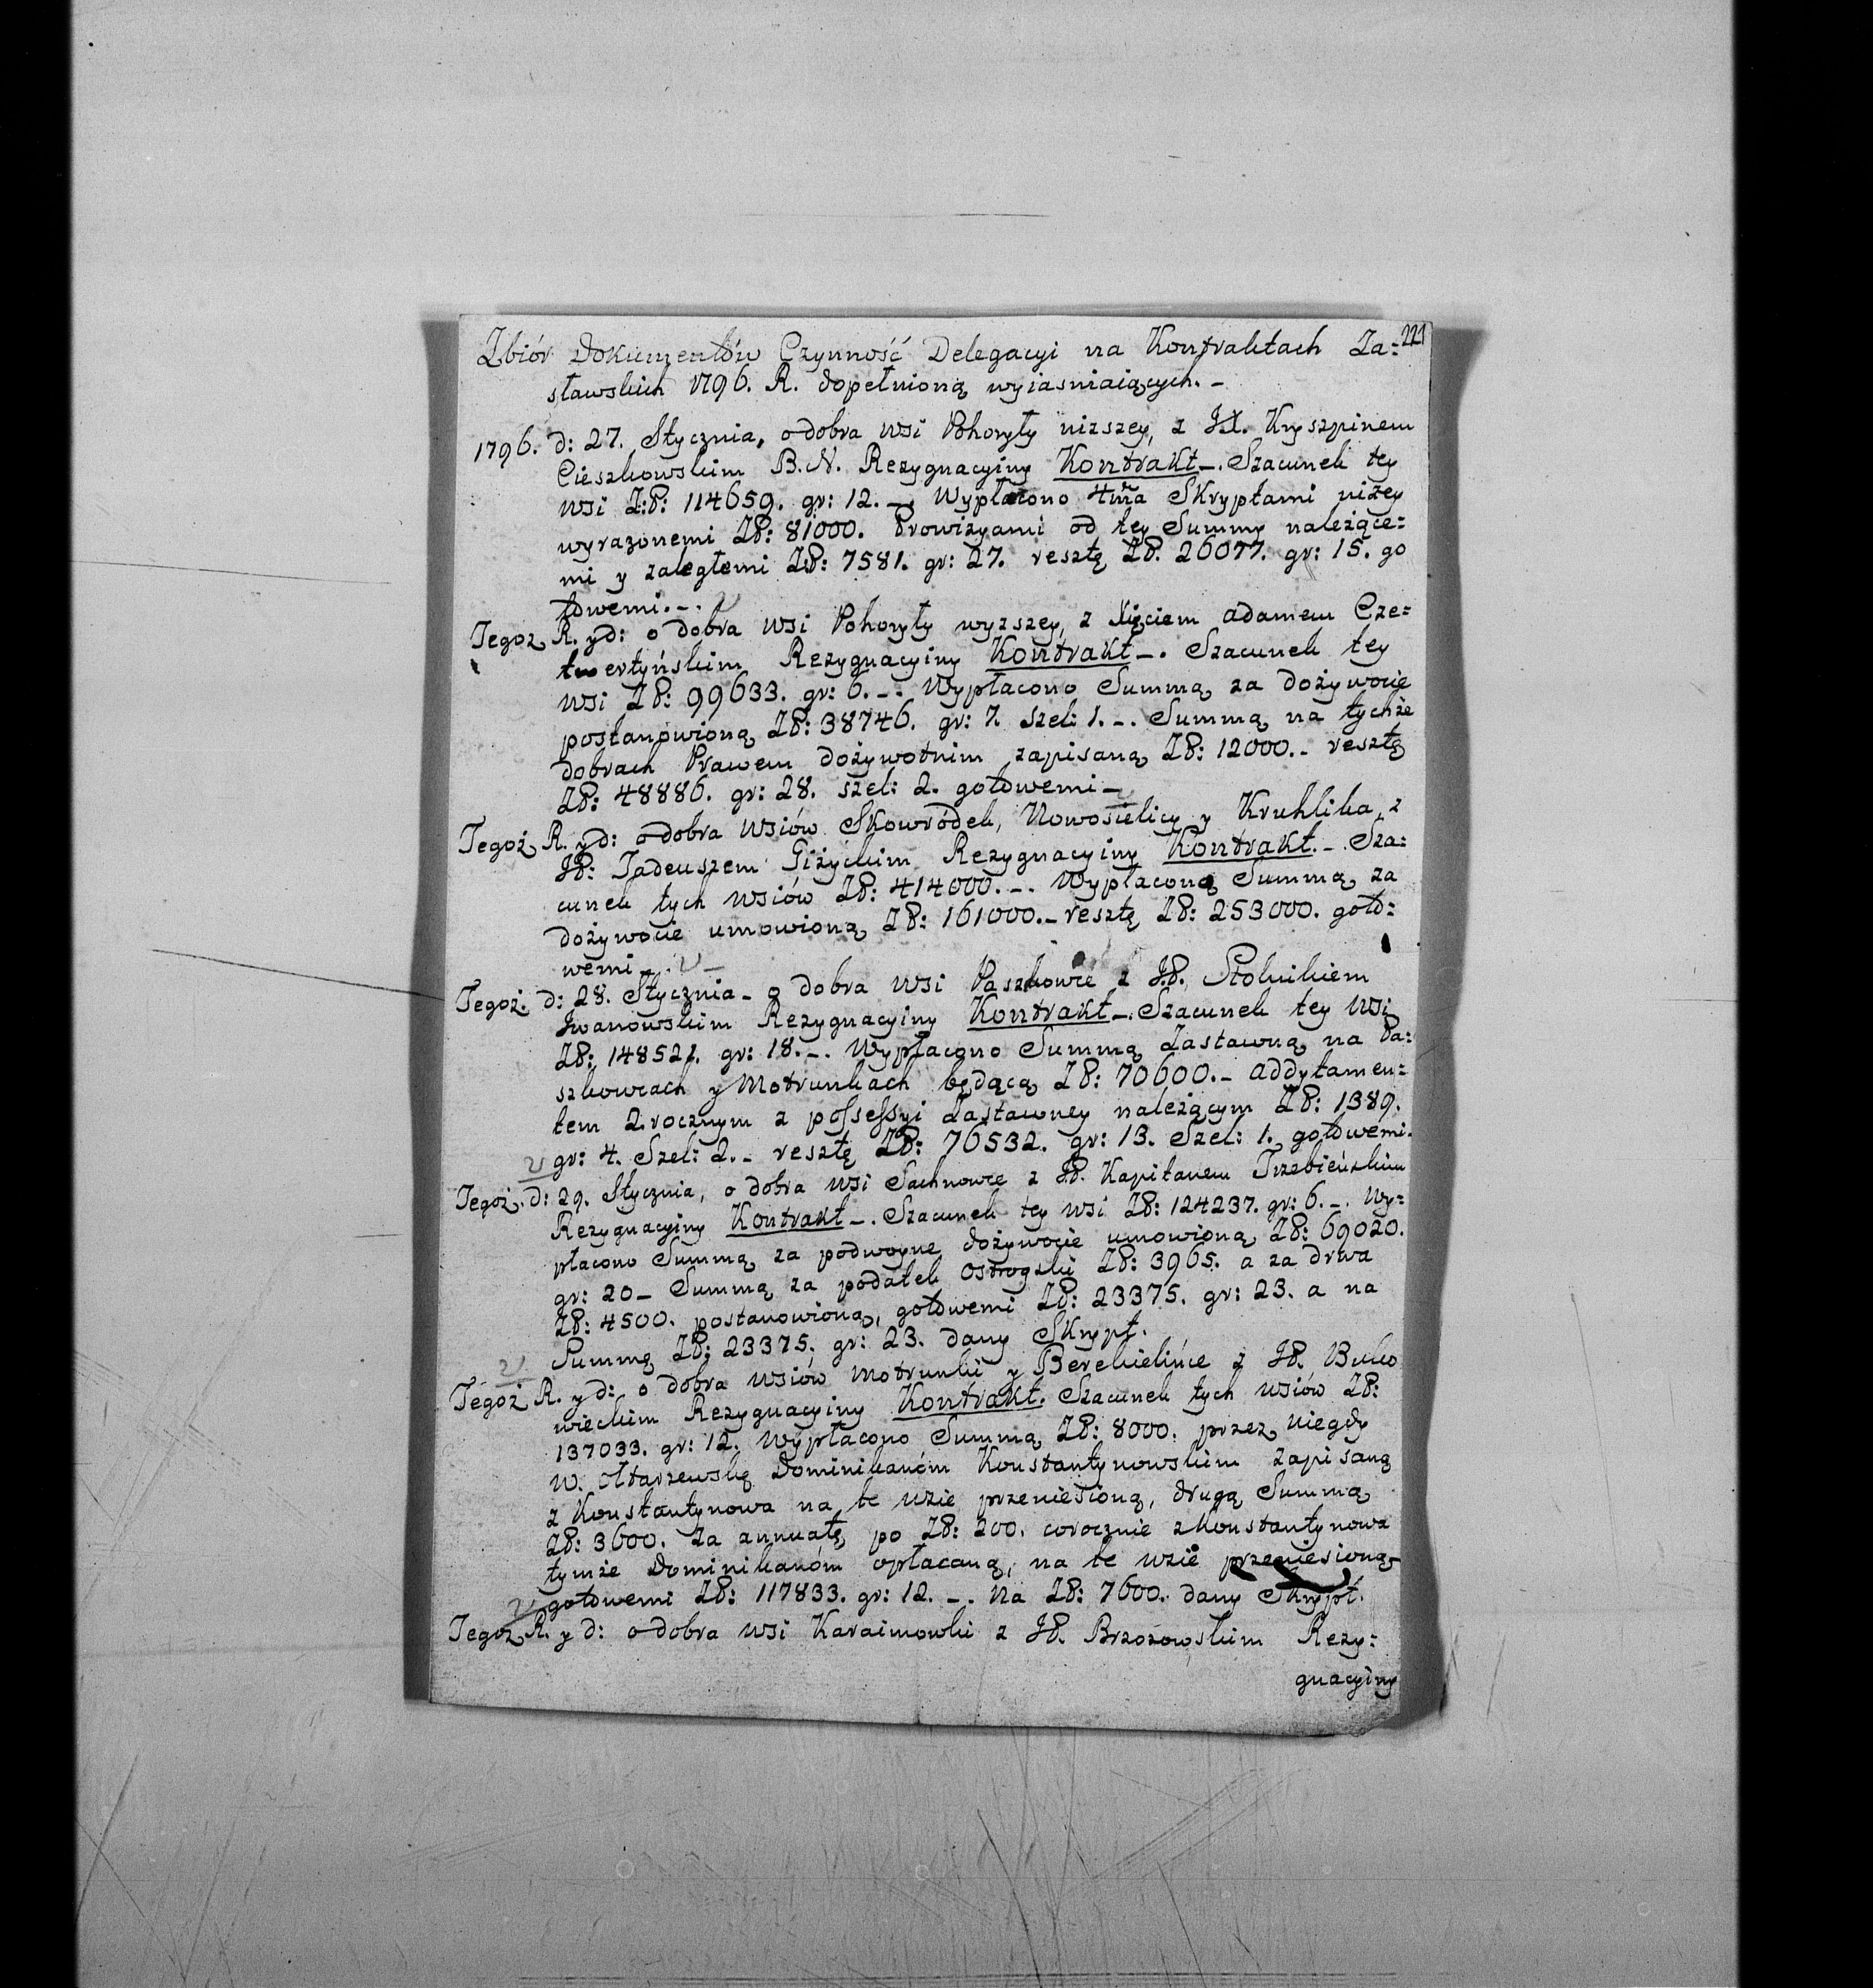 221
Zbiór Dokumentów Czynność Delegacyi na Kontraktach Za:
sławskich 1796. R. dopełnioną wyiasniaiących. -
1796. d: 27. Stycznia, o dobra wsi Pohoryły nizszey, z JX. Kryszpinem
Cieszkowskim B.N. Rezygnacyiny Kontrakt -. Szacunek tey
wsi Z:P: 114659. gr: 12. -. Wypłacono 4ma Skryptami niżey
wyrażonemi ZP: 81000. Prowizyami od tey Summy należące:
mi y zaległemi ZP: 7581. gr: 27. resztę ZP. 26077. gr: 15. go
towemi. -.
Tegoż R. y d: o dobra wsi Pohoryły wyzszey, z Xięciem adamem Cze=
twertyńskim Rezygnacyiny Kontrakt -. Szacunek tey
wsi ZP: 99633. gr: 6. -. Wypłacono Summą za dożywocie
postanowioną ZP: 38746. gr: 7. szel: 1. -. Summą na tychże
dobrach Prawem dożywotnim zapisaną ZP: 12000. - resztę
ZP: 48886. gr: 28. szel: 2. gotowemi -
Tegoż R. y d: o dobra wsiów Skowródek, Nowosielicy y Kruhlika, z
JP: Tadeuszem Giżyckim Rezygnacyiny Kontrakt. - Sza:
cunek tych wsiów ZP: 414000. -. Wypłaconą Summą za
dożywocie umowioną ZP: 161000. - resztę ZP: 253000. goto:
wemi -.
Tegoż. d: 28. Stycznia - o dobra wsi Paszkowce z JP. Stolnikiem
Iwanowskim Rezygnacyiny Kontrakt -. Szacunek tey wsi
ZP: 148521. gr: 18. -. Wypłacono Summą Zastawną na Pa:
szkowcach y Motrunkach będącą ZP: 70600. - addytamen:
tem 2. rocznym z possessyi Zastawney należącym ZP: 1389.
gr: 4. Szel: 2. - resztę ZP: 76532. gr: 13. Szel: 1. gotowemi.
Tegoż. d: 29. Stycznia, o dobra wsi Sachnowce z JP. Kapitanem Trzebieńskim
Rezygnacyiny Kontrakt -. Szacunek tey wsi ZP: 124237. gr: 6. -. Wy=
płacono Summą za podwoyne dożywocie umowioną ZP: 69020.
gr: 20 - Summą za podatek Ostrogski ZP: 3965. a za drwa
ZP: 4500. postanowioną, gotowemi ZP: 23375. gr: 23. a na
Summą ZP: 23375. gr: 23. dany Skrypt.
Tegoż R. y d: o dobra wsiów Motrunki y Berekielińce z JP. Buko
wieckim Rezygnacyiny Kontrakt. Szacunek tych wsiów ZP:
137033. gr: 12. Wypłacono Summą ZP: 8000. przez niegdy
W. Ołtarzewską Dominikanóm Konstantynowskim zapisaną
z Konstantynowa na te wsie przeniesioną, drugą Summą
ZP: 3600. za annuatę po ZP: 200. corocznie z Konstantynowa
tymże Dominikanóm opłacaną, na te wsie przeniesioną
gotowemi ZP: 117833. gr: 12. -. Na ZP: 7600. dany Skrypt.
Tegoż R. y d: o dobra wsi Karaimowki z JP. Brzozowskim Rezy:
gnacyiny